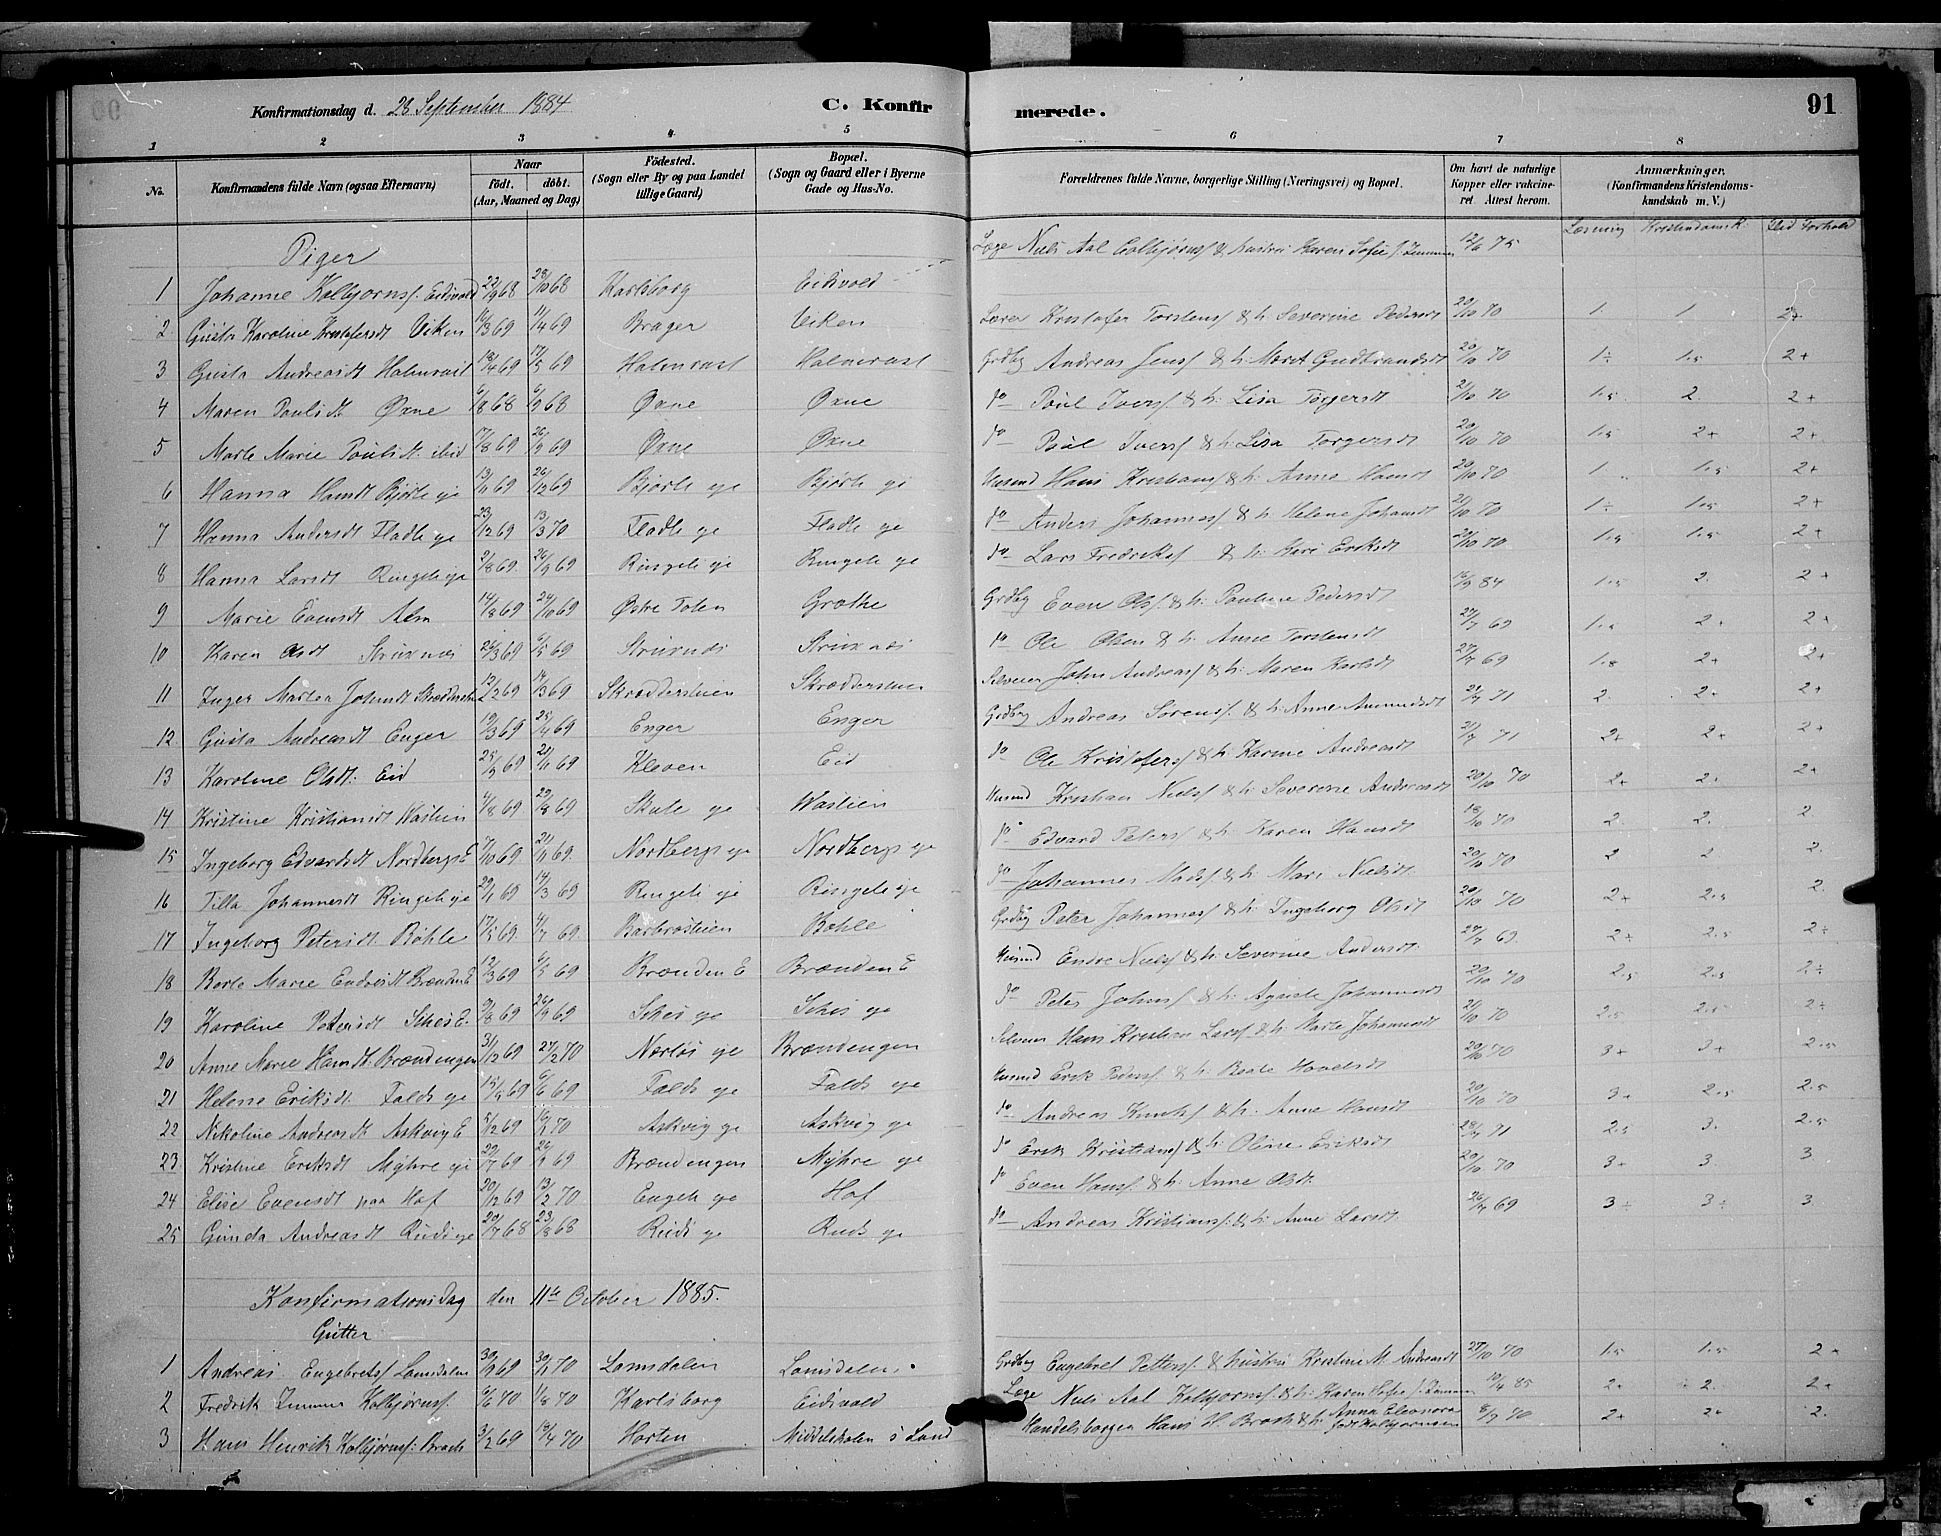 Konfirmationsdag d. 28 September 1884
C. Konfirmerede.
91
1 2 3 4 5 6 7 8
No.
Konfirmandens fulde Navn (ogsaa Efternavn)
Naar
født. døbt.
(Aar, Maaned og Dag)
Fødested.
(Sogn eller By og paa Landet
tillige Gaard)
Bopæl.
(Sogn og Gaard eller i Byerne
Gade og Hus-No.
Forældrenes fulde Navne, borgerlige Stilling (Næringsvei) og Bopæl.
Om havt de naturlige
Kopper eller vakcine-
ret Attest herom.
Anmærkninger.
(Konfirmandens Kristendoms-
kundskab m. V.)
Læsning Kristendomsk. Flid Forhold
Piger
1 Johanne Kolbjørnsf. Eidsvold 22/9 68 28/10 68 Karlsborg Eidsvold Læge Niels Aal Colbjørnsf & hustru Karen Sofie f. Zimmer 12/6 75
2 Gusta Karoline Kristofersdt Viken /3 69 11/4 69 Brager Viken Lærer Kristofer Torstensf & h. Severine Pedersdt 20/10 70 1. 1 2+
3 Gusta Andreasdt Halmrast 18/4 69 17/5 69 Halmrast Halmrast Grdbg Andreas Jensf & h. Marit Gudbrandsdt 20/10 70 1÷ 1.5 2+
4 Maren Paulsdt Øxne 6/8 68 6/9 68 Øxne Øxne do Poul Iversf & h. Lisa Torgersdt 21/10 70 1.5 2. 2+
5 Marte Marie Paulsdt ibid 17/8 69 26/9 69 Øxne Øxne do Paul Iversf & h. Lisa Torgersdt 20/10 70 1.5 2+ 2+
6 Hanna Hansdt Bjørle eje 13/11 69 26/12 69 Bjørle eje Bjørle ej Husmd Hans Kristiansf & h. Anne Hansdt 20/10 70 1. 1.5 2+
7 Hanna Andersdt Fladle eje 23/12 69 13/3 70 Fladle eje Fladle eje do Anders Johannesf & h. Helene Johansdt 20/10 70 1÷ 1.5 2+
8 Hanna Larsdt Ringeli eje 2/8 69 26/9 69 Ringeli eje Ringeli eje do Lars Fredriksf & h. Kari Eriksdt 20/10 70 1.5 1.5 2+
9 Marie Evensdt Alm 14/8 69 24/10 69 Østre Toten Grøthe Grdbg Even Olsf. & h. Pauline Pedersdt 15/9 84 1.5 2. 2+
10 Karen Olsdt Struxnæs 26/3 69 6/5 69 Struxnæs Struxnæs do Ole Olsen & h. Anne Torstensdt 27/7 69 1.5 2+ 2+
11 Inger Martea Johnsdt Skrædderstuen 12/2 69 14/3 69 Skrædderstuen Skrædderstuen Selveier John Andreasf & h. Maren Karlsdt 27/7 69 1.8 2+ 2+
12 Gusta Andreasdt Enger 19/3 69 25/4 69 Enger Enger Grdbg Andreas Sørensf. & h. Anne Amundsdt 21/7 71 2. 2+ 2+
13 Karoline Olsdt. Eid 25/9 69 21/11 69 Kleven Eid do Ole Kristofersf & h. Karine Andreasdt 21/7 71 2+ 2+ 2+
14 Kristine Kristiansdt Wastien /8 69 29/8 69 Skute eje Wastien Husmd Kristian Nielsf & h. Severine Andreasdt 20/10 70 2+ 2+ 2+
15 Ingeborg Edvardsdt Nordbergs E 7/10 69 21/11 69 Nordbergs eje Nordbergs eje do Edvard Petersf & h. Karen Hansdt 18/10 70 2. 2. 2
16 Tilla Johannesdt Ringeli eje 29/1 69 14/3 69 Ringeli eje Ringeli eje do Johannes Madsf & h. Mari Nielsdt 20/10 70 2 2 2.
17 Ingeborg Petersdt. Bøhle 17/5 69 4/7 69 Barbrostuen Bøhle Grdbg Peter Johannesf & h. Ingeborg Olsdt 20/10 70 2+ 2.5 2.
18 Berte Marie Endresdt Brænden E 12/3 69 6/5 69 Brænden E Brænden E Husmd Endre Nielsf & h. Severine Andersdt. 27/7 69 2÷ 2.5 2÷
19 Karoline Petersdt Sches E. 9/8 69 26/9 69 Sches eje Sches eje do Peter Johnsf & h. Agnete Johannesdt 20/10 70 2.5 2.5 2÷
20 Anne Marie Hansdt. Brændengen 31/12 69 27/2 70 Nærløs eje Brændengen Selveier Hans Kristian Larsf & h. Marte Johannesdt 21/10 70 2.5 2.5 2÷
21 Helene Eriksdt. Falds eje 15/4 69 6/6 69 Falds eje Falds eje Husmd Erik Pedersf & h. Beate Hovelsdt 20/10 70 3+ 3+ 2.5
22 Nikoline Andreasdt Askvig E 5/12 69 16/1 70 Askvig eje Askvig eje do Andreas Knutsf & h. Anne Hansdt 20/10 70 3+ 2.5 2.5
23 Kristine Eriksdt Myhre eje 29/7 69 26/9 69 Brændengen Myhre eje do Erik Kristiansf & h. Oline Eriksdt 28/7 71 2.5 3. 2.5
24 Elise Evensdt paa Hof 20/12 69 13/2 70 Engeli eje Hof do Even Hansf. & h. Anne Olsdt. 20/10 70 3+ 3 3.
25 Gunda Andreasdt Ruds eje 20/7 68 23/8 68 Ruds eje Ruds eje do Andreas Kristiansf. & h. Anne Larsdt. 26/7 69 3÷ 3÷ 3
Konfirmationsdag den 11te October 1885.
Gutter
1 Andreas Engebretsf Lomsdalen 30/9 69 30/1 70 Lomsdalen Lomsdalen Grdbg Engebret Pettersf. & hustru Kristine M. Andreasdt 27/10 70 1.5 1.5 2+
2 Fredrik Zimmer Kolbjørnsf. /6 70 /8 70 Karlsborg Eidsvold Læge Niels Aal Kolbjørnsf. & h. Karen Sofie f. Zimmer 10/4 85 2+ 2. 2+
3 Hans Henrik Kolbjørnsf. Brock 3/12 69 18/4 70 Horten Middelskolen i Land Handelsborger Hans H. Brock & h. Anna Eleonora født Kolbjørnsen 8/9 70 2+ 2+ 2.